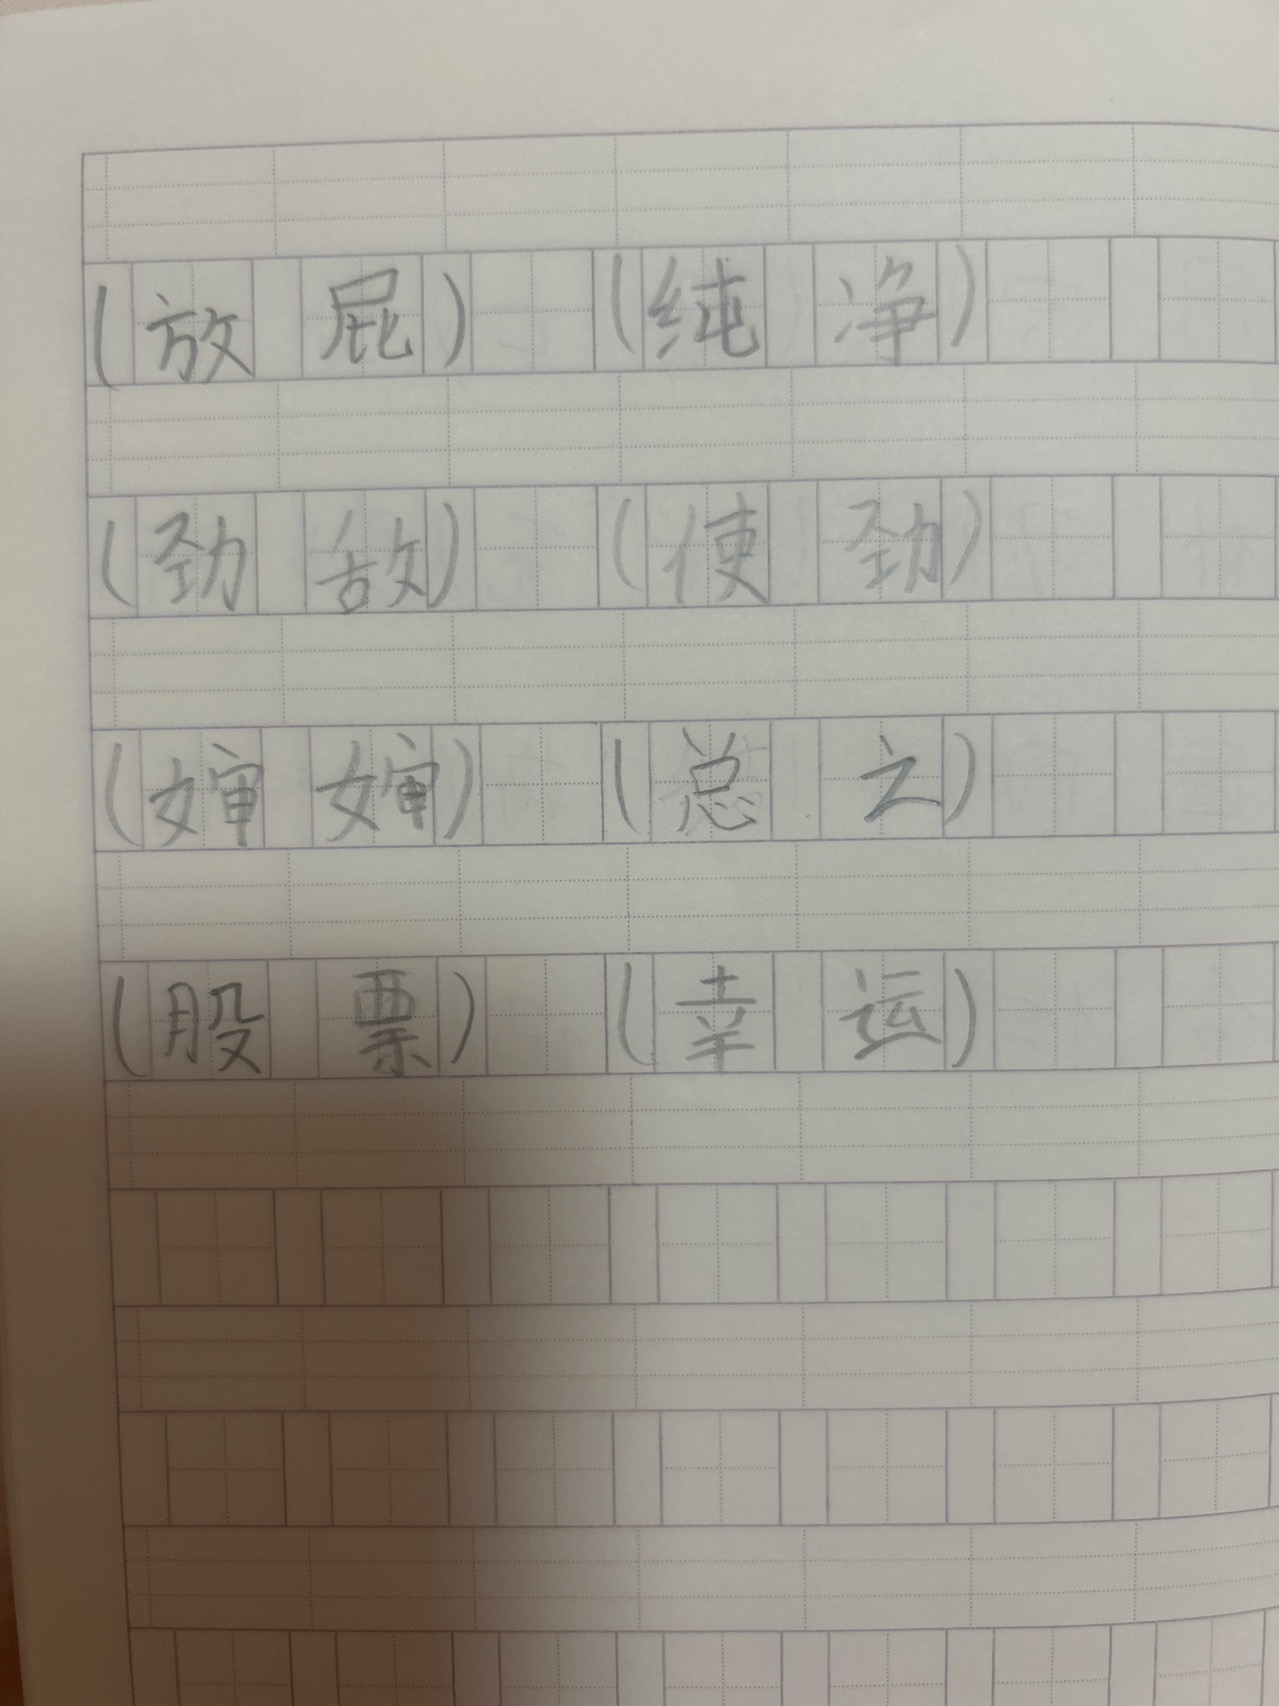 (放屁) (纯净)
(劲敌) (使劲)
(婶婶) (总之)
(股票) (幸运)